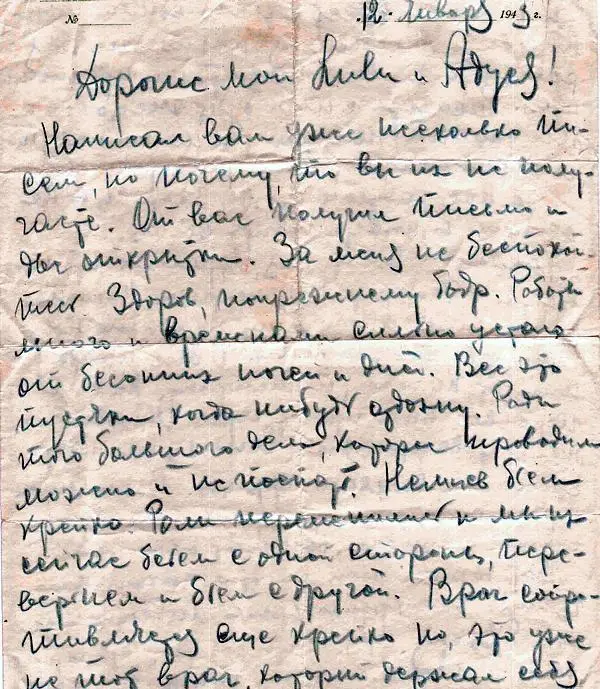 №
12. Января 1943 г.
Дорогие мои Ливи и Адуся!
Написал вам уже несколько пи-
сем, но почему, то вы их не полу-
чаете. От вас получил письмо и
две открытки. За меня не беспокой-
тесь Здоров, попрежнему бодр. Работы
много и временами сильно устаю
от бессонных ночей и дней. Все это
пустяки, когда нибудь отдохну. Ради
того большого дела, которое проводим
можно и не поспать. Немцев бьем
крепко. Роли переменились и мы их
сейчас бьем с одной стороны, пере-
вернем и бьем с другой. Враг сопро-
тивляется еще крепко но, это уже
не тот враг, который держал себя